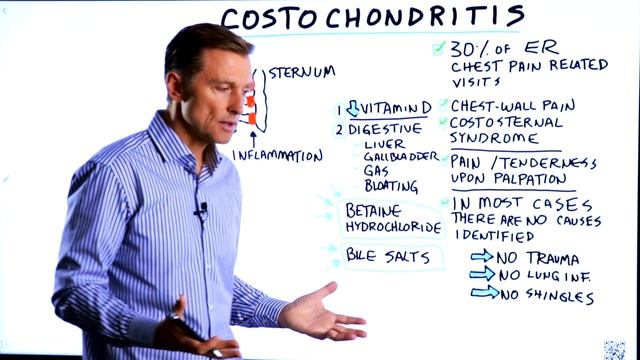 COSTOCHONDRITIS
STERNUM
INFLAMMATION
1 VITAMIN D
2 DIGESTIVE
LIVER
GALLBLADDER
GAS
BLOATING
BETAINE
HYDROCHLORIDE
BILE SALTS
30% OF ER
CHEST PAIN RELATED
VISITS
CHEST-WALL PAIN
COSTOSTERNAL
SYNDROME
PAIN/TENDERNESS
UPON PALPATION
IN MOST CASES
THERE ARE NO CAUSES
IDENTIFIED
NO TRAUMA
NO LUNG INF.
NO SHINGLES